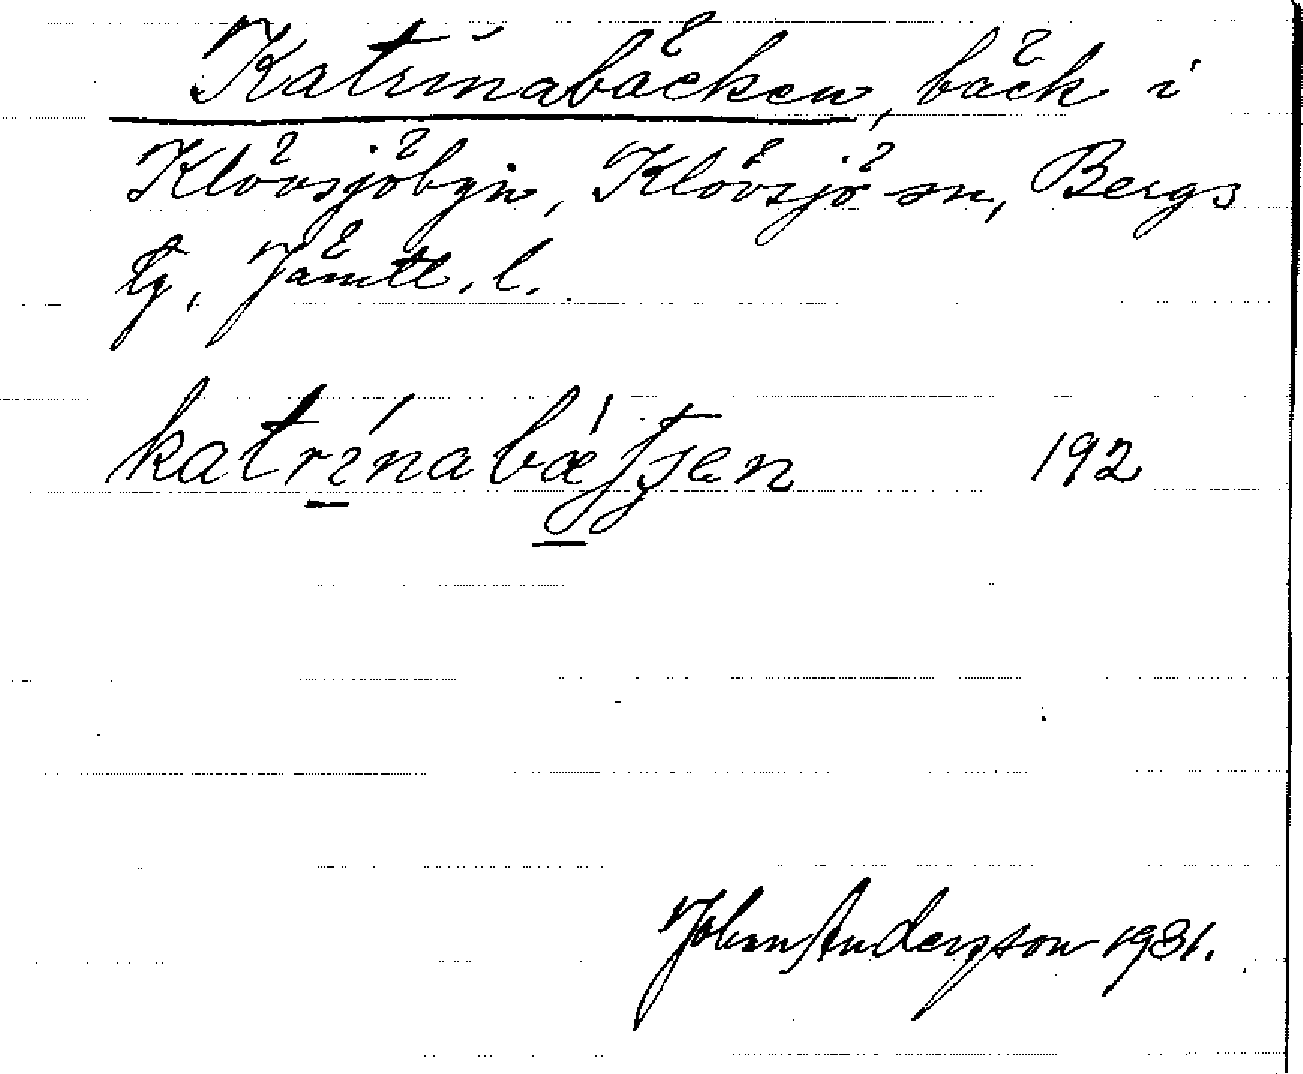 Katrinabäcken, bäck i
Klövsjöbyn, Klövsjö sn, Bergs
tg, Jämtl. l.
katrínabǽʃʃen 192
John Andersson 1931.